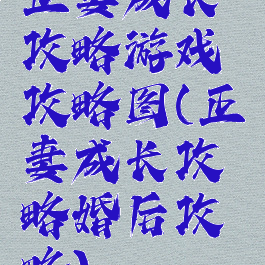 正妻成长
攻略游戏
攻略图(正
妻成长攻
略婚后攻
略)